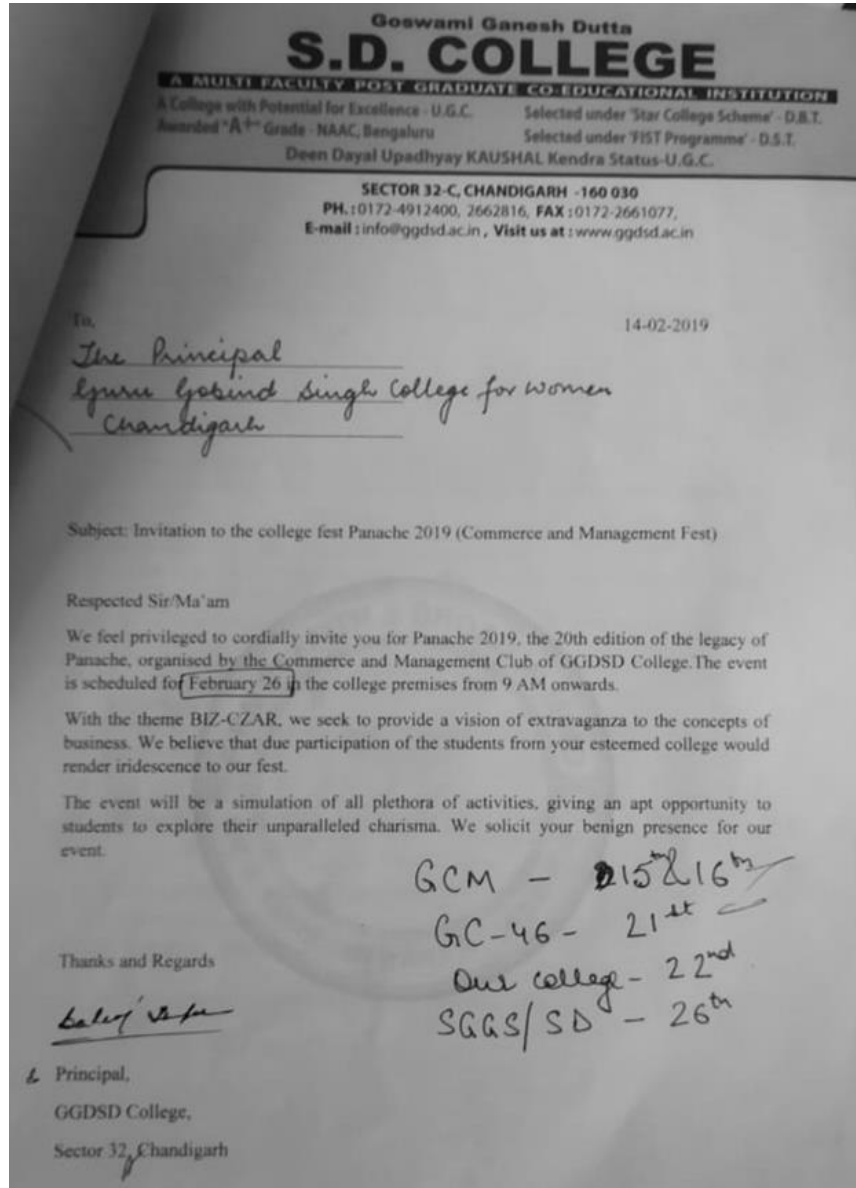 Goswami Ganesh Dutta
S.D. COLLEGE
A MULTI FACULTY POST GRADUATE CO-EDUCATIONAL INSTITUTION
A College with Potential for Excellence - U.G.C.
Selected under 'Star College Scheme' - D.B.T.
Awarded "A+" Grade - NAAC, Bengaluru
Selected under 'FIST Programme' - D.S.T.
Deen Dayal Upadhyay KAUSHAL Kendra Status-U.G.C.
SECTOR 32-C, CHANDIGARH -160 030
PH.:0172-4912400, 2662816, FAX :0172-2661077,
E-mail : info@ggdsd.ac.in , Visit us at : www.ggdsd.ac.in
To,
14-02-2019
The Principal
Guru Gobind Singh College for women
Chandigarh
Subject: Invitation to the college fest Panache 2019 (Commerce and Management Fest)
Respected Sir/Ma'am
We feel privileged to cordially invite you for Panache 2019, the 20th edition of the legacy of
Panache, organised by the Commerce and Management Club of GGDSD College.The event
is scheduled for February 26 in the college premises from 9 AM onwards.
With the theme BIZ-CZAR, we seek to provide a vision of extravaganza to the concepts of
business. We believe that due participation of the students from your esteemed college would
render iridescence to our fest.
The event will be a simulation of all plethora of activities, giving an apt opportunity to
students to explore their unparalleled charisma. We solicit your benign presence for our
event.
GCM - 15th & 16th
GC-46 - 21st
Our college - 22nd
SGGS/SD - 26th
Thanks and Regards
Principal,
GGDSD College,
Sector 32, Chandigarh